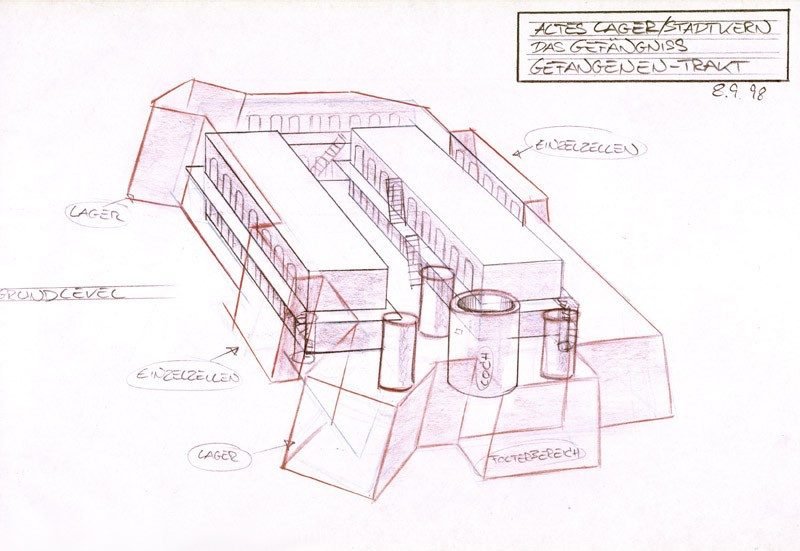 ALTES LAGER/STADTKERN
DAS GEFÄNGNISS
GEFANGENEN-TRAKT
8.9.98
EINZELZELLEN
LAGER
GRUNDLEVEL
EINZELZELLEN
LOCH
LAGER
FOLTERBEREICH